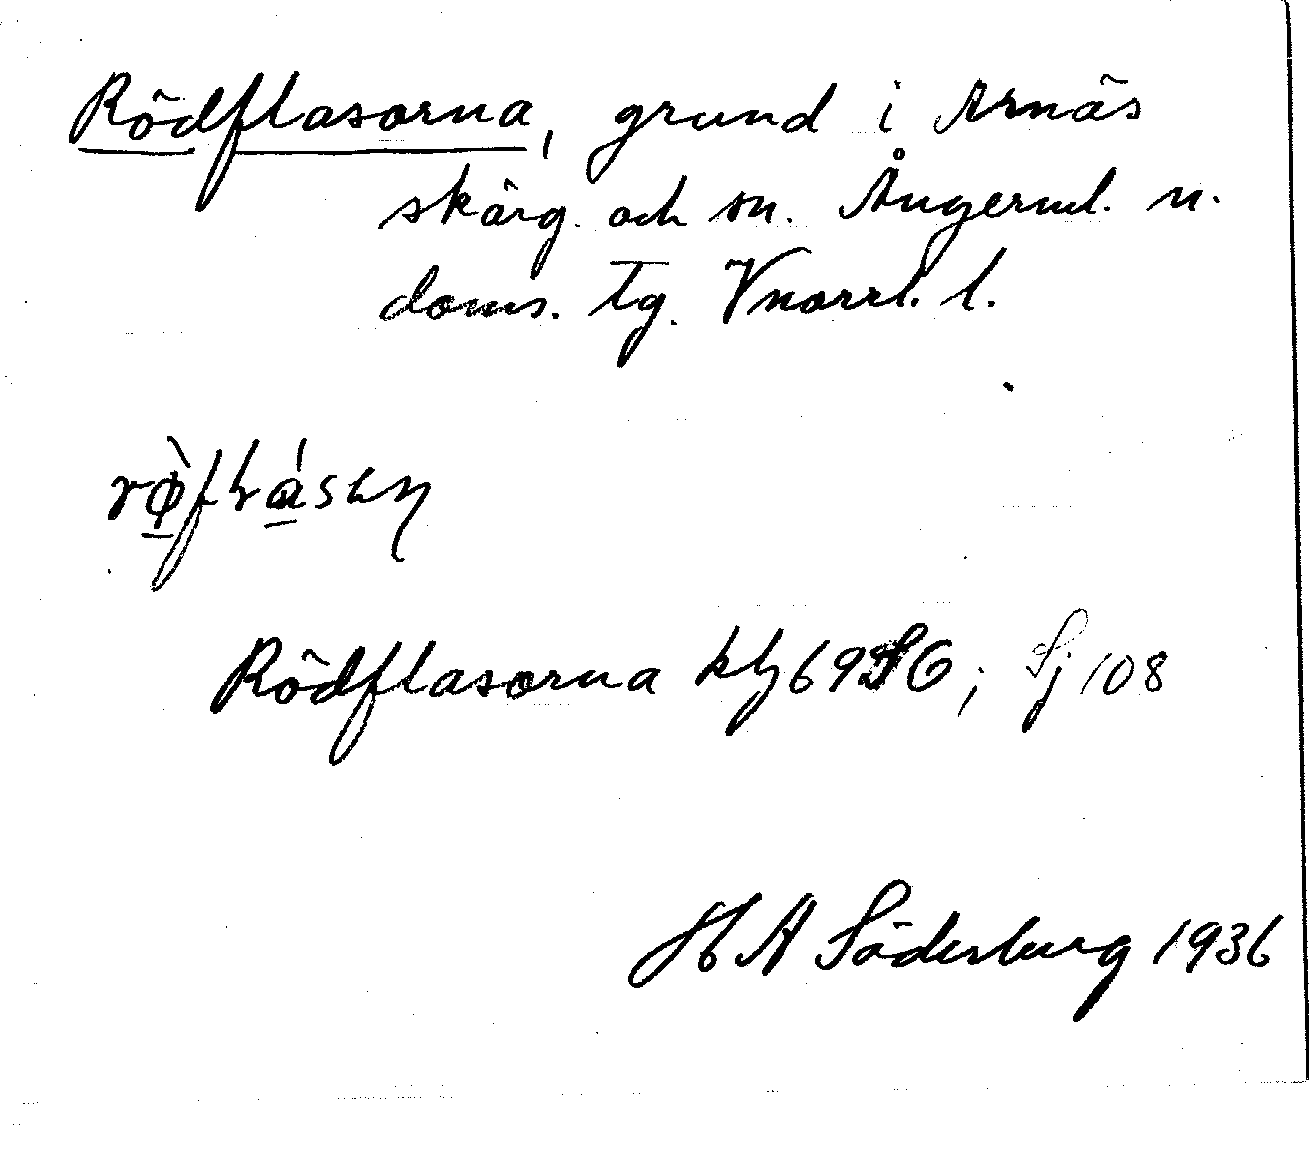 Rödflasorna, grund i Arnäs
skärg. och sn. Ångerml. n.
doms. tg. Vnorrl. l.
Rödflasorna kbl 69 SO; Sj 108
H A Söderberg 1936